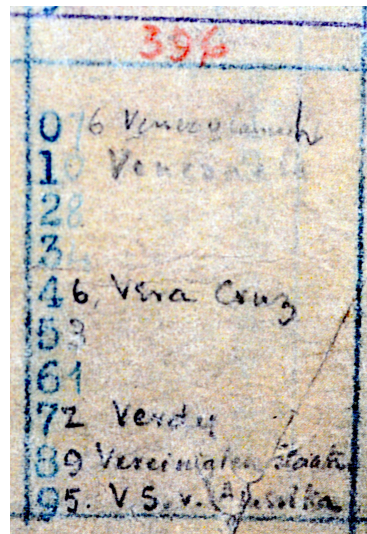 396
07 6 Venezolanisch
10 Venezuela
28
3
46, Vera Cruz
58
61
72 Verdy
89 Vereinigten Staaten
95. V.S.v. Amerika